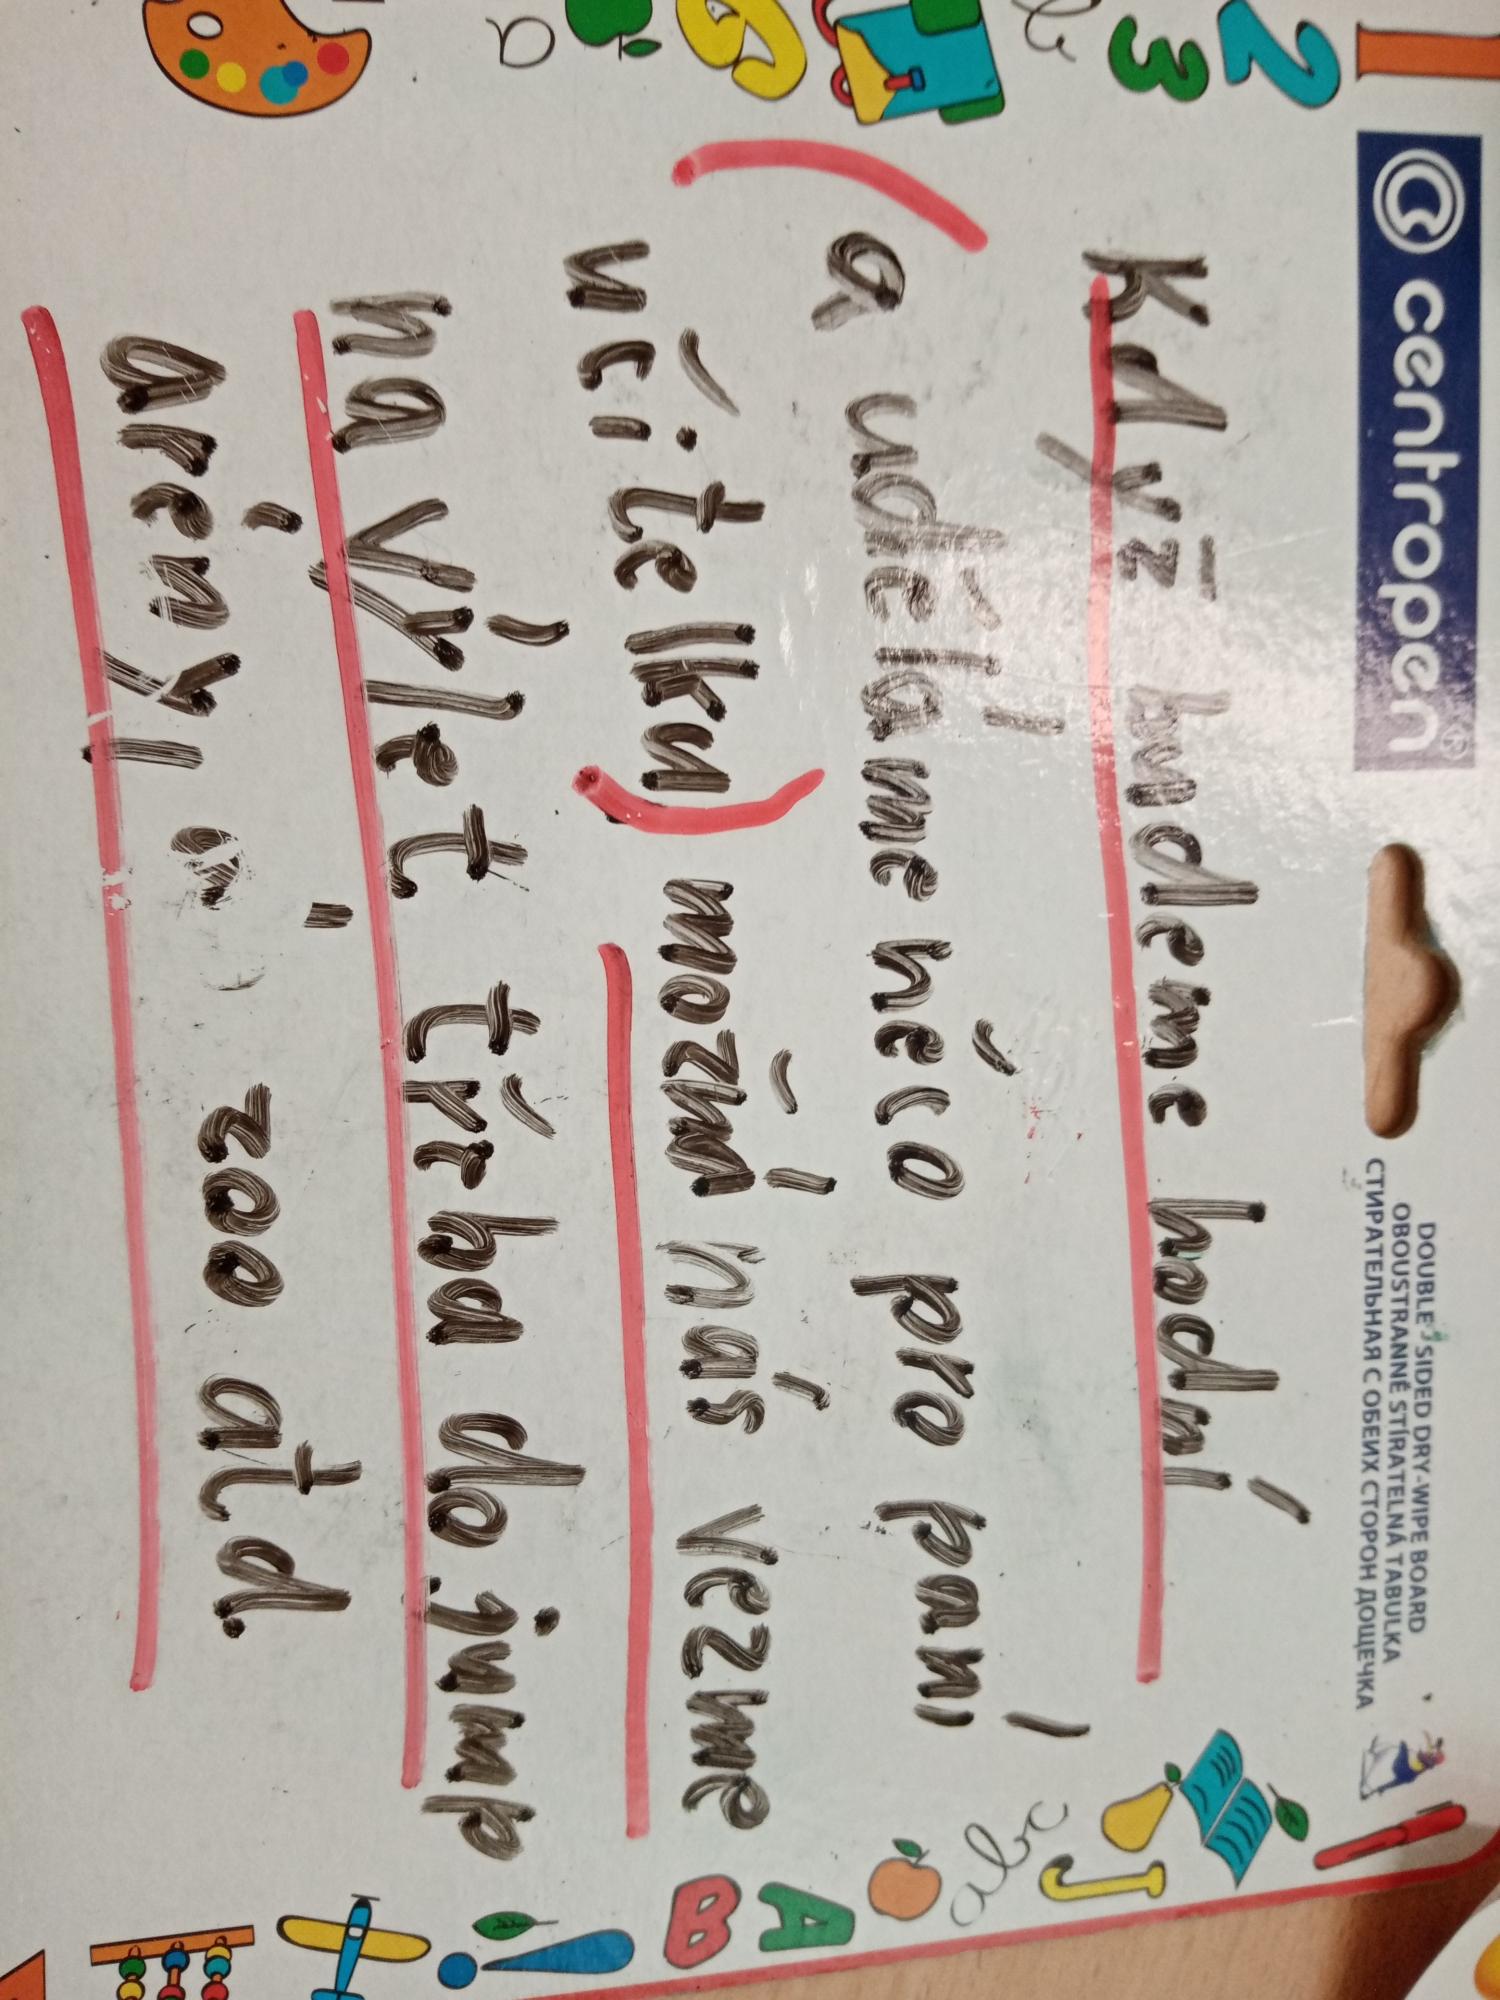 centropen®
DOUBLE-SIDED DRY-WIPE BOARD
OBOUSTRANNĚ STÍRATELNÁ TABULKA
СТИРАТЕЛЬНАЯ С ОБЕИХ СТОРОН ДОЩЕЧКА
1
2
3
6
a
Kdyz̄ budeme hodní
(a uděláme něco pro paní
učitelku) mozná nás vezme
na výlet třeba do jump
arény, zoo atd.
abc
J
A
B
!